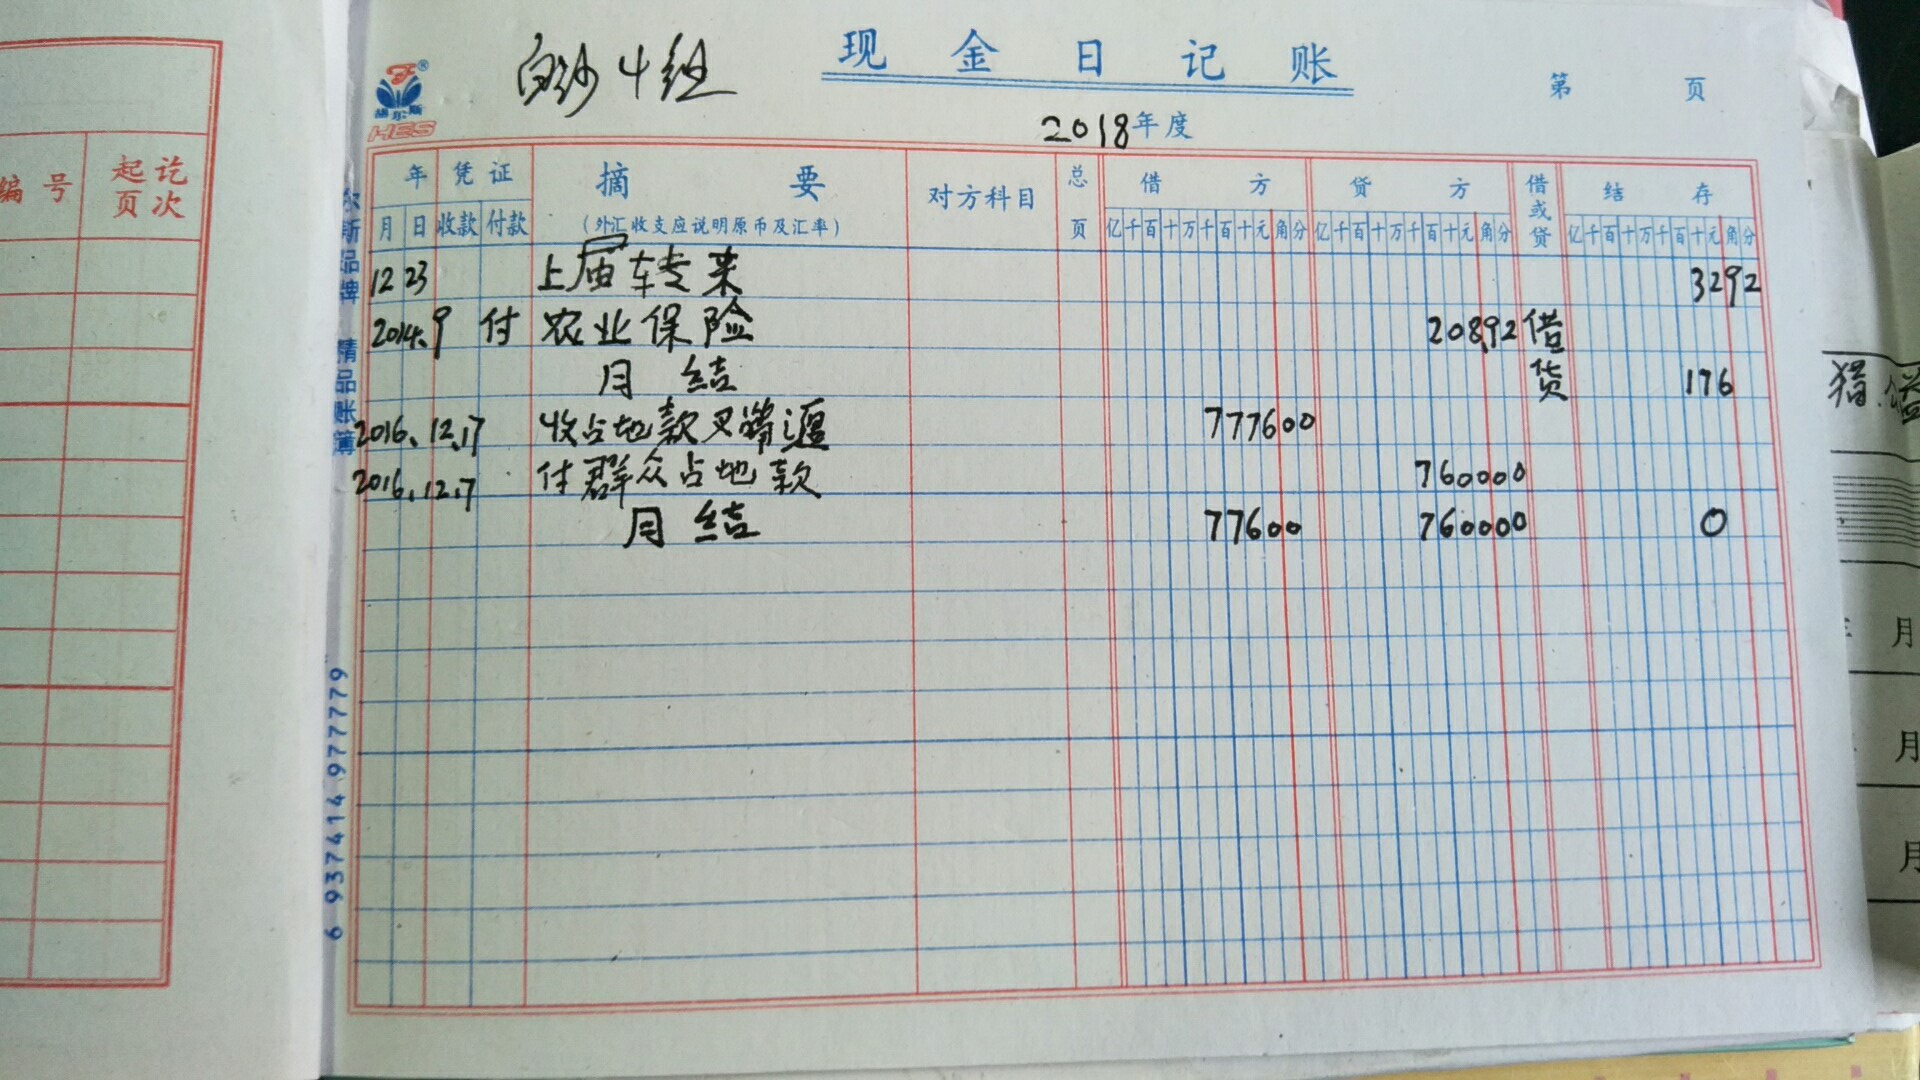 现金日记账
白沙4组
第 页
2018年度
赫尔斯
HES
编号 起讫页次
年 凭证 摘要 对方科目 总页 借方 贷方 借或贷 结存
月 日 收款 付款 (外汇收支应说明原币及汇率) 亿千百十万千百十元角分 亿千百十万千百十元角分 亿千百十万千百十元角分
12 23 上届转来 3292
2014.9 付 农业保险 208.92 借
月结 货 176
2016.12.17 收占地款 777600
2016.12.7 付群众占地款 760000
月结 77600 760000 0
尔斯品牌 精品账簿
6 937414 977779
月
月
月